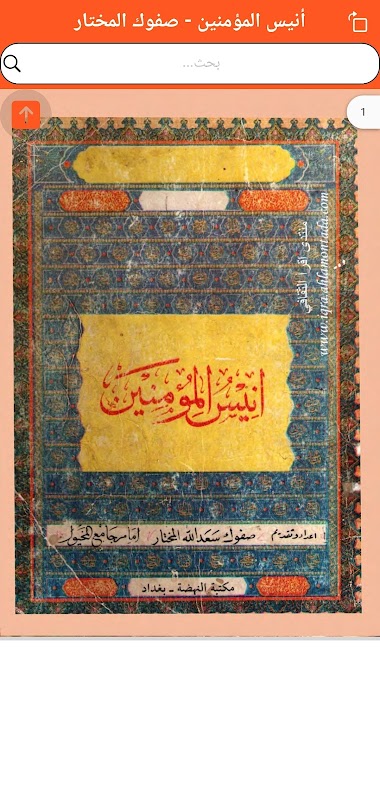 أنيس المؤمنين - صفوك المختار
بحث...
1
منتدى اقرأ الثقافي
www.iqra.ahlamontada.com
انيس المؤمنين
اعداد وتقديم صفوك سعد الله المختار امام جامع
مكتبة النهضة - بغداد